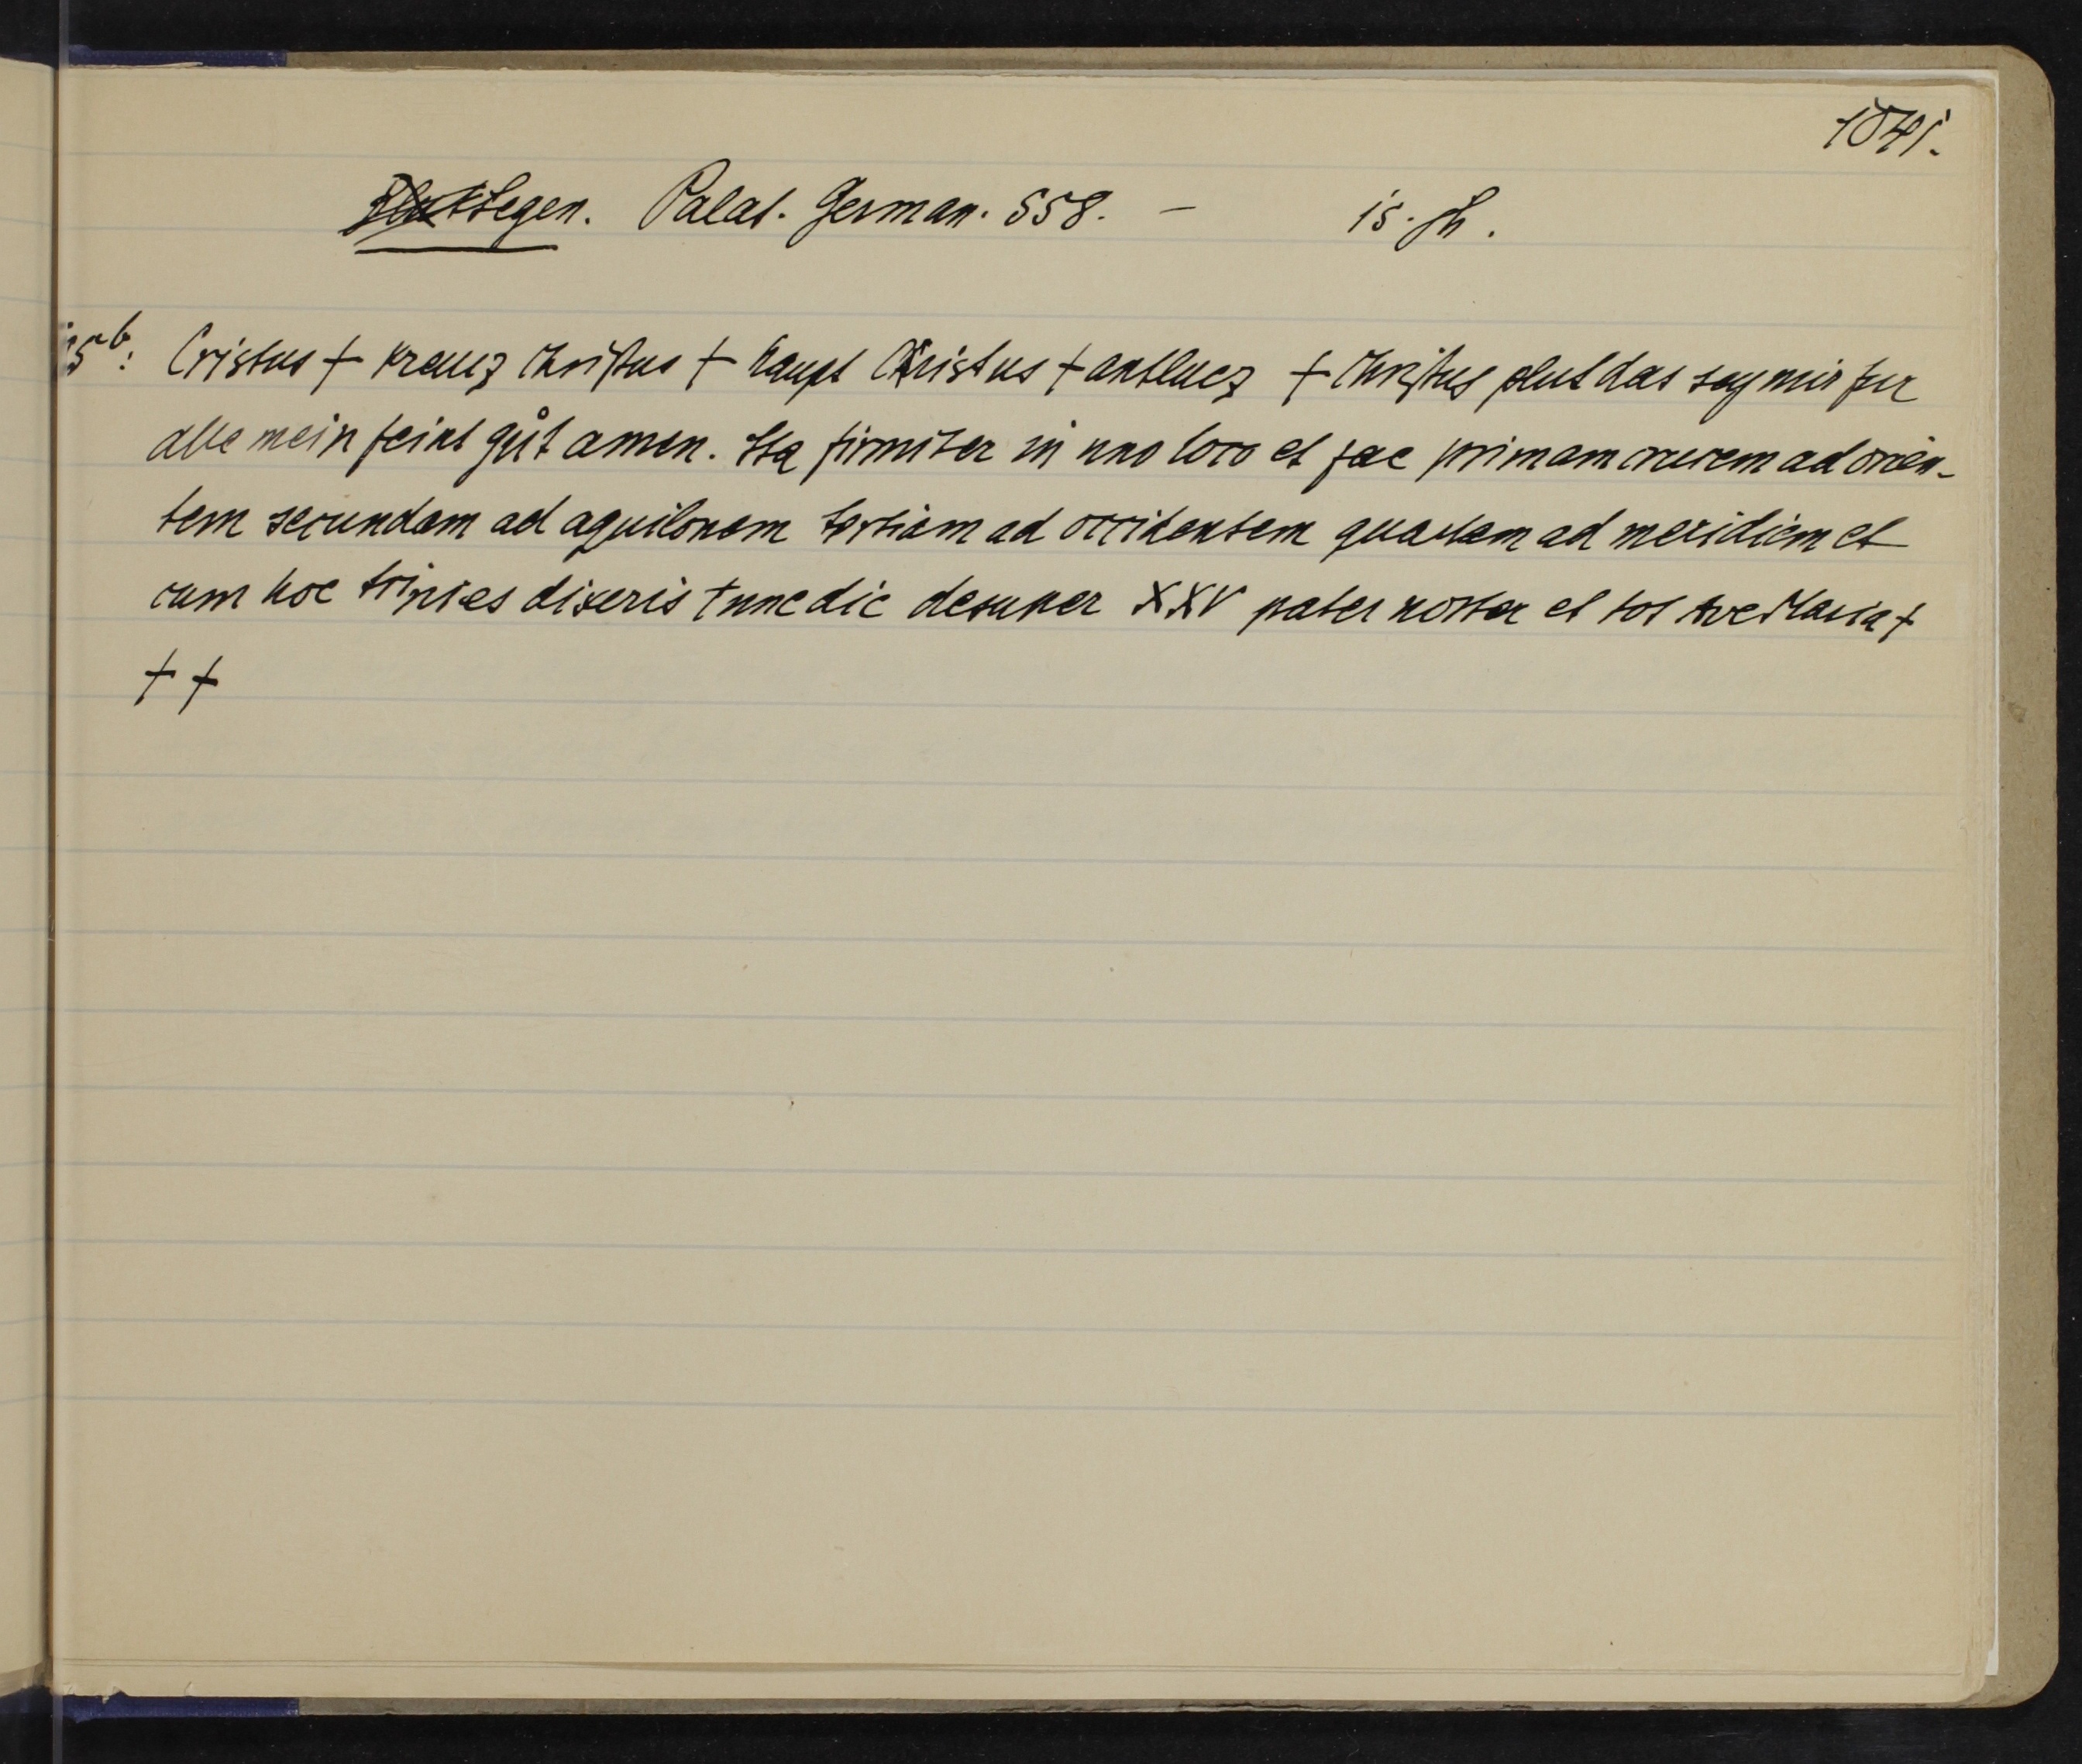 1041.
Segen. Palat. German. 558. – 15. Jh.
b: Cristus † kreucz christus † haupt Christus † antlucz † christus plut das sey mir fur
alle mein feint gůt amen. Sta firmiter in uno loco et fac primam crucem ad orien-
tem secundam ad aquilonem tertiam ad occidentem quartam ad meridiem et
cum hoc dixeris tunc dic desuper XXV pater noster et tot Ave Maria †
† †